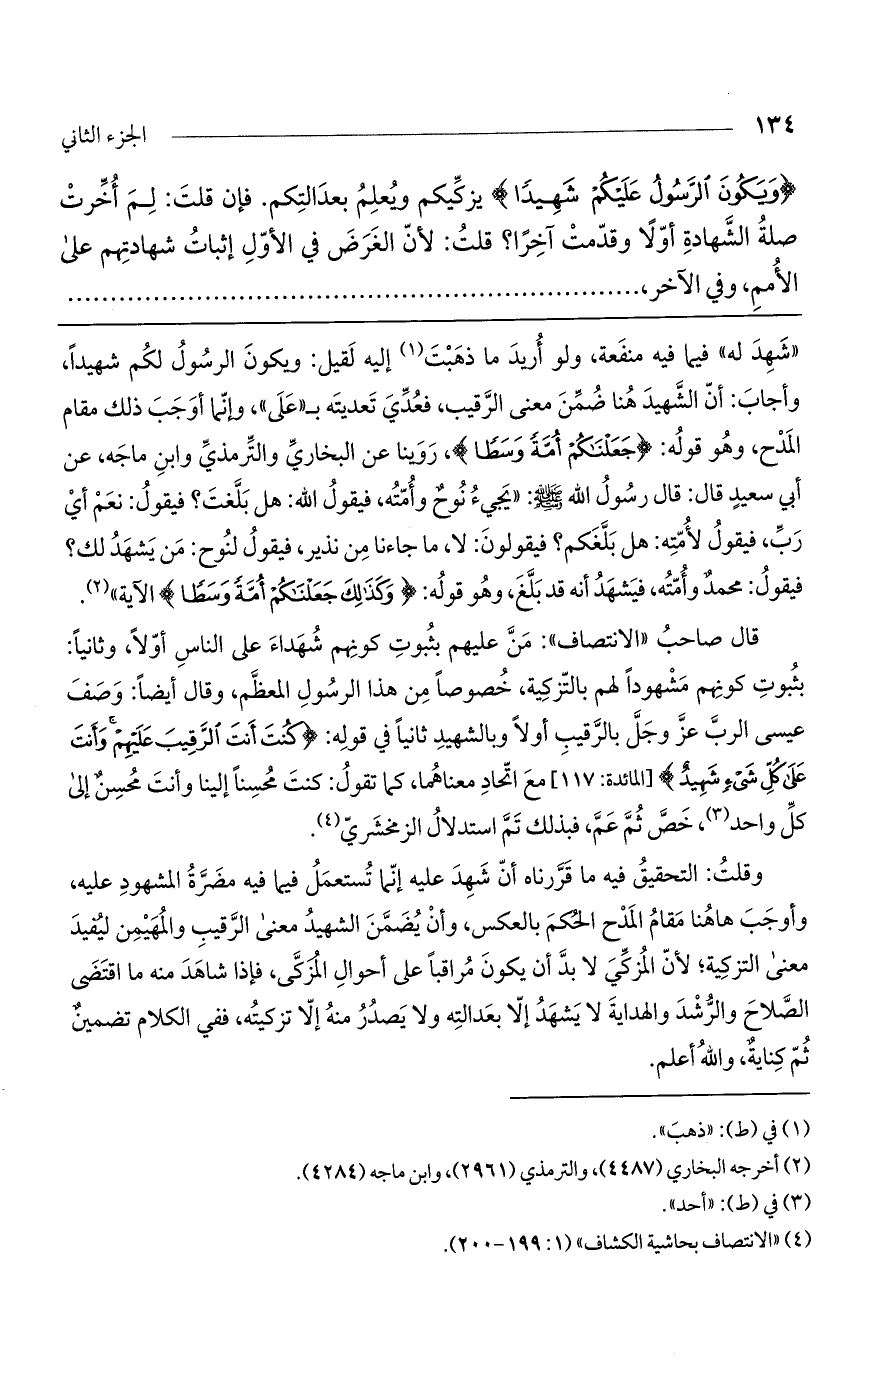 ١٣٤ الجزء الثاني
﴿وَيَكُونَ ٱلرَّسُولُ عَلَيْكُمْ شَهِيدًا﴾ يزكِّيكم ويُعلِمُ بعدَالتِكم. فإن قلتَ: لِـمَ أُخِّرتْ
صلةُ الشَّهادةِ أوّلًا وقدّمتْ آخِرًا؟ قلتُ: لأنّ الغَرَضَ في الأوّلِ إثباتُ شهادتِهم على
الأُممِ، وفي الآخر،................................................................
«شَهِدَ له» فيما فيه منفَعة، ولو أُريدَ ما ذهَبْتَ(١) إليه لَقيل: ويكونَ الرسُولُ لكُم شهيداً،
وأجابَ: أنّ الشَّهيدَ هُنا ضُمِّنَ معنى الرَّقيب، فعُدِّيَ تَعديتَه بـ«عَلَى»، وإنّما أوَجَبَ ذلك مقام
المَدْح، وهُو قولُه: ﴿جَعَلْنَـٰكُمْ أُمَّةً وَسَطًا﴾، رَوَينا عن البخاريِّ والتِّرمذيِّ وابنِ ماجَه، عن
أبي سعيدٍ قال: قال رسُولُ الله ﷺ: «يَجيءُ نُوحٌ وأُمّتُه، فيقولُ الله: هل بَلَّغتَ؟ فيقولُ: نعَمْ أيْ
رَبِّ، فيقولُ لأُمّتِه: هل بَلَّغَكم؟ فيقولونَ: لا، ما جاءنا مِن نذير، فيقولُ لنُوح: مَن يَشهَدُ لك؟
فيقولُ: محمدٌ وأُمّتُه، فيَشهَدُ أنه قد بَلَّغَ، وهُو قولُه: ﴿وَكَذَٰلِكَ جَعَلْنَـٰكُمْ أُمَّةً وَسَطًا﴾ الآية»(٢).
قال صاحبُ «الانتصاف»: مَنَّ عليهم بثُبوتِ كونِهم شُهَداءَ على الناسِ أوّلاً، وثانياً:
بثُبوتِ كونِهم مَشْهوداً لهم بالتّزكِية، خُصوصاً مِن هذا الرسولِ المعظَّم، وقال أيضاً: وَصَفَ
عيسى الربَّ عزَّ وجَلَّ بالرَّقيبِ أولاً وبالشهيدِ ثانياً في قولِه: ﴿كُنتَ أَنتَ ٱلرَّقِيبَ عَلَيْهِمْ ۚ وَأَنتَ
عَلَىٰ كُلِّ شَىْءٍ شَهِيدٌ﴾ [المائدة: ١١٧] معَ اتّحادِ معناهُما، كما تقولُ: كنتَ مُحسِناً إلينا وأنت مُحسِنٌ إلى
كلِّ واحد(٣)، خَصَّ ثُمَّ عَمَّ، فبذلك تَمَّ استدلالُ الزمخشَريّ(٤).
وقلتُ: التحقيقُ فيه ما قَرَّرناه أنّ شَهِدَ عليه إنّما تُستعمَلُ فيما فيه مضَرَّةُ المشهودِ عليه،
وأوجَبَ هاهُنا مَقامُ المَدْح الحُكمَ بالعكس، وأنْ يُضَمَّنَ الشهيدُ معنىٰ الرَّقيبِ والمُهَيْمِن ليُفيدَ
معنىٰ التزكِية؛ لأنّ المُزكِّيَ لا بدَّ أن يكونَ مُراقباً على أحوالِ المُزَكَّى، فإذا شاهَدَ منه ما اقتَضَى
الصَّلاحَ والرُّشْدَ والهدايةَ لا يَشهَدُ إلّا بعَدالتِه ولا يَصدُرُ منهُ إلّا تزكيتُه، ففي الكلام تضمينٌ
ثُمّ كِنايةٌ، واللهُ أعلم.
(١) في (ط): «ذهبَ».
(٢) أخرجه البخاري (٤٤٨٧)، والترمذي (٢٩٦١)، وابن ماجه (٤٢٨٤).
(٣) في (ط): «أحد».
(٤) «الانتصاف بحاشية الكشاف» (١: ١٩٩-٢٠٠).